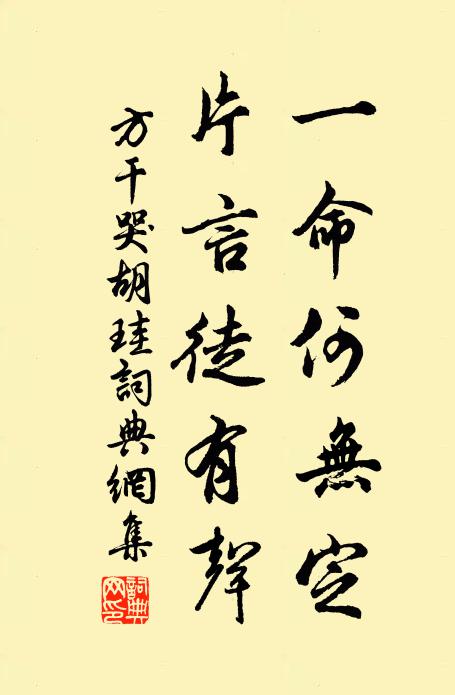 一命何無定
片言徒有聲
方干哭胡珪詞典網集
詞典網印